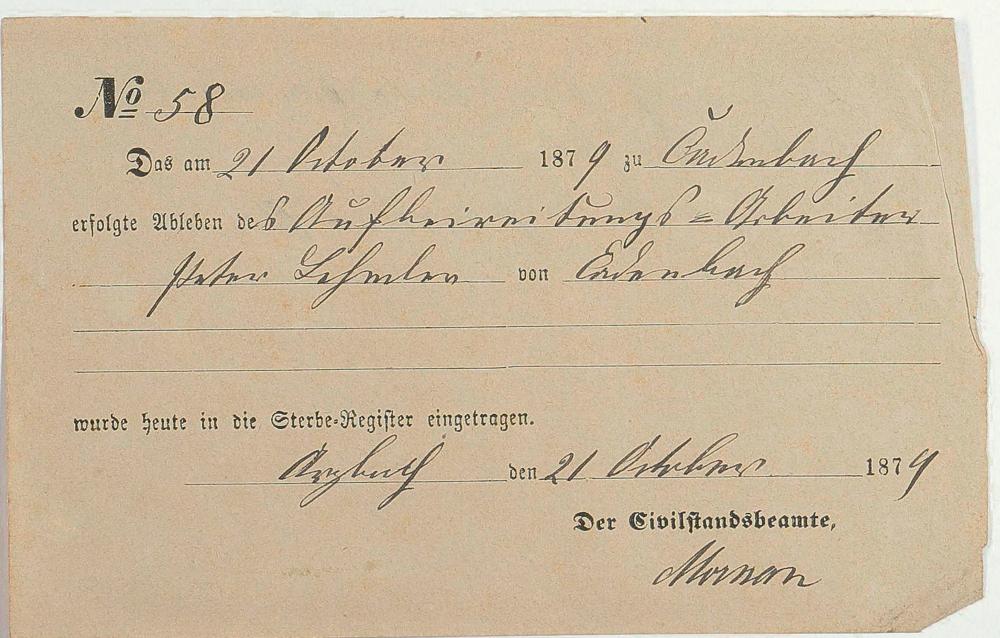 No 58
Das am 21 October 1879 zu Cadenbach
erfolgte Ableben des Aufbereitungs=Arbeiter
Peter Lehmler von Cadenbach
wurde heute in die Sterbe-Register eingetragen.
Arzbach den 21 October 1879
Der Civilstandsbeamte,